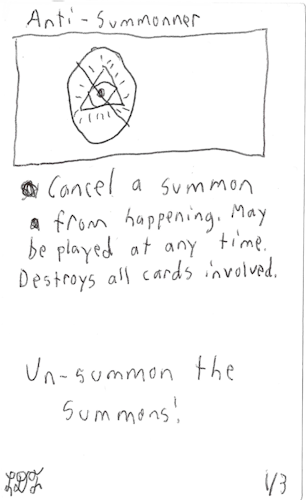 Anti-Summonner
Cancel a summon
from happening. May
be played at any time.
Destroys all cards involved.
Un-summon the
Summons!
LDZ
1/3